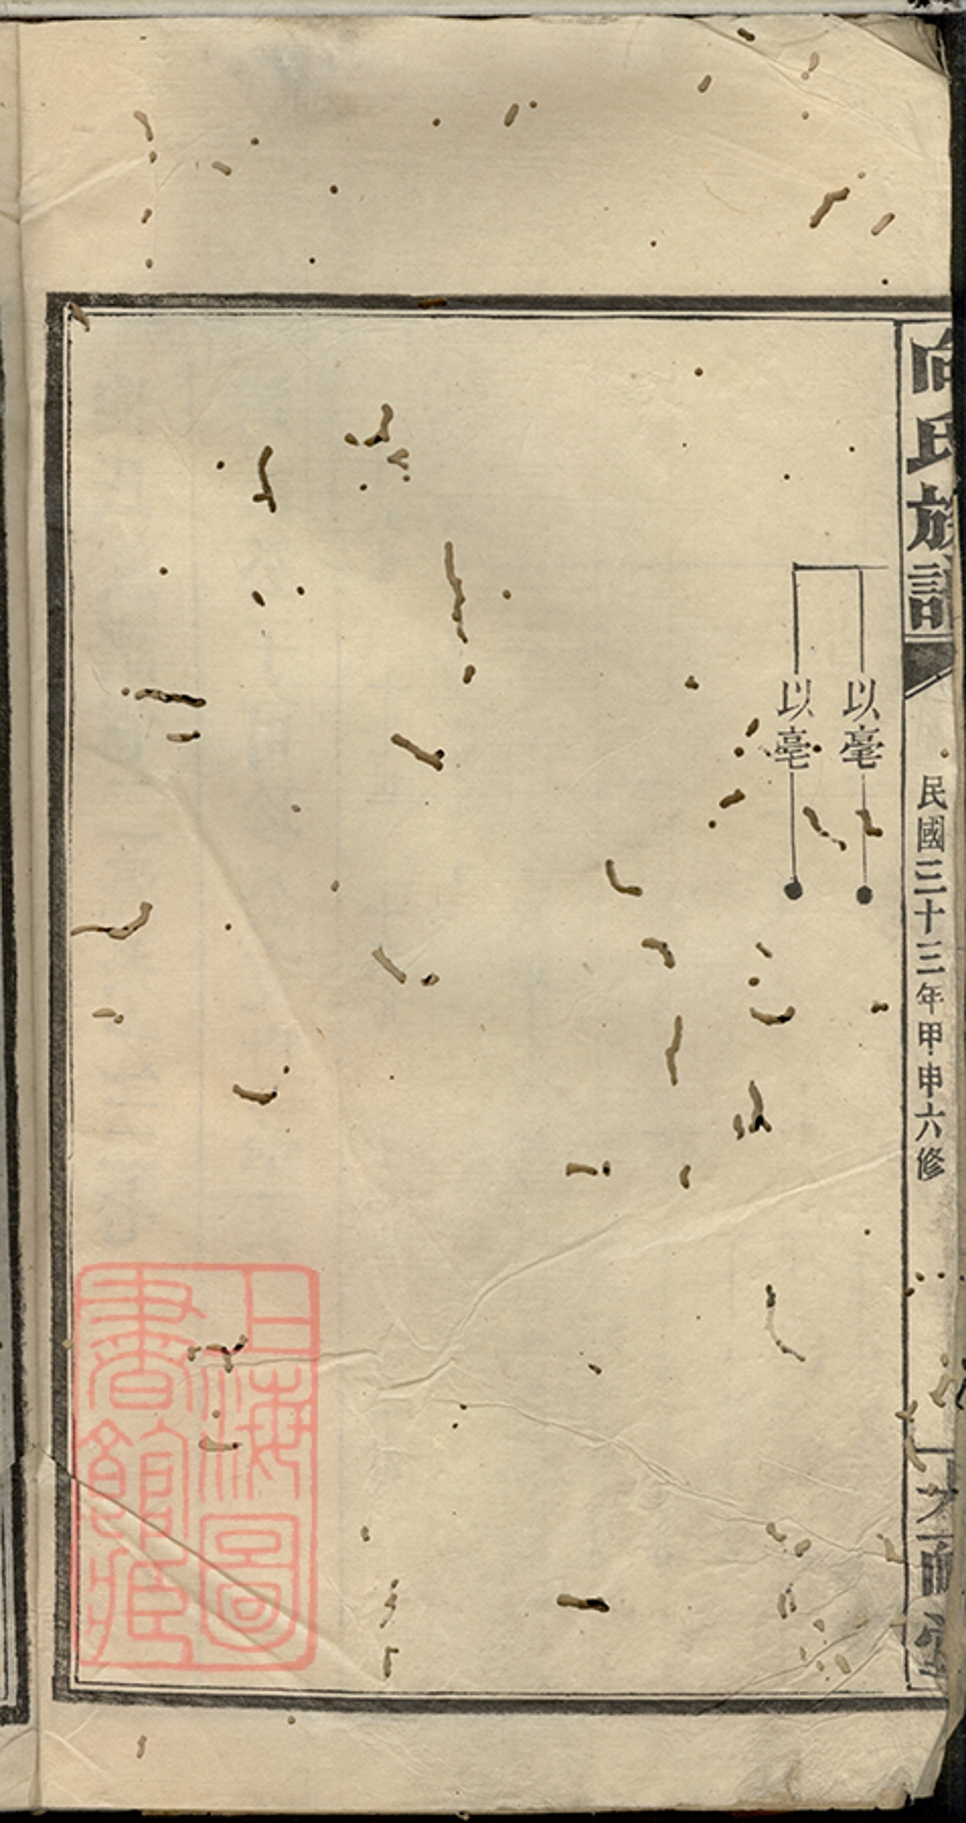 向氏族譜
民國三十三年甲申六修
以毫
以亳
上海圖
書館藏